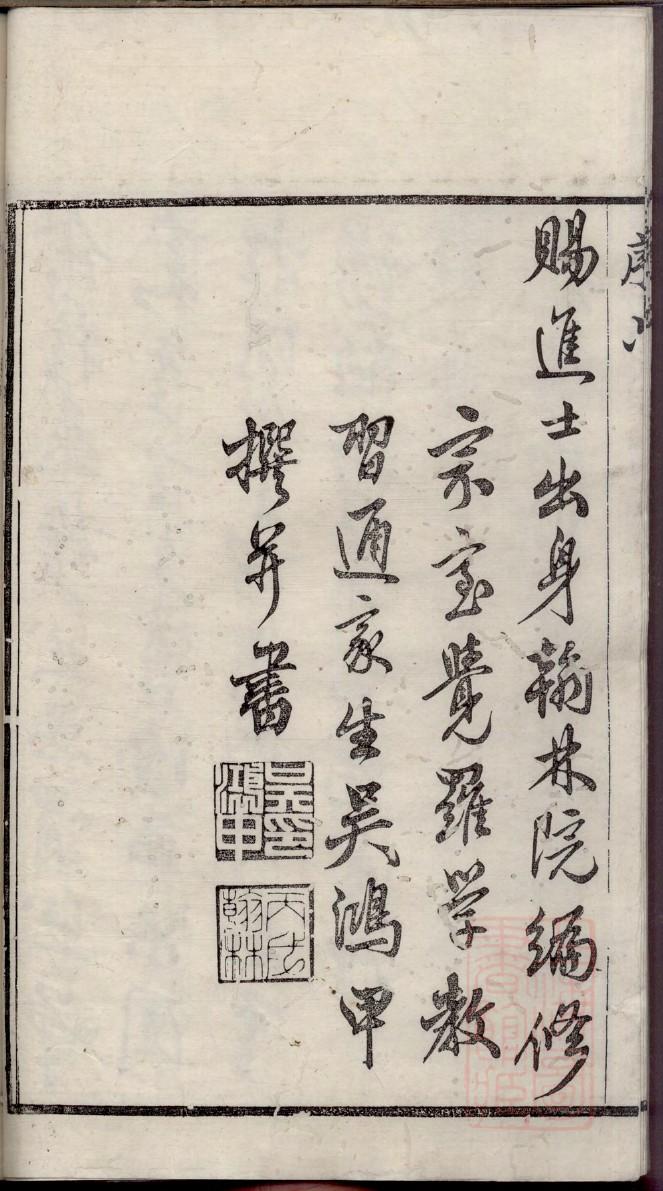 賜進士出身翰林院編修
宗室覺羅學教
習通家生吳鴻甲
撰并書
吳印鴻甲
翰林